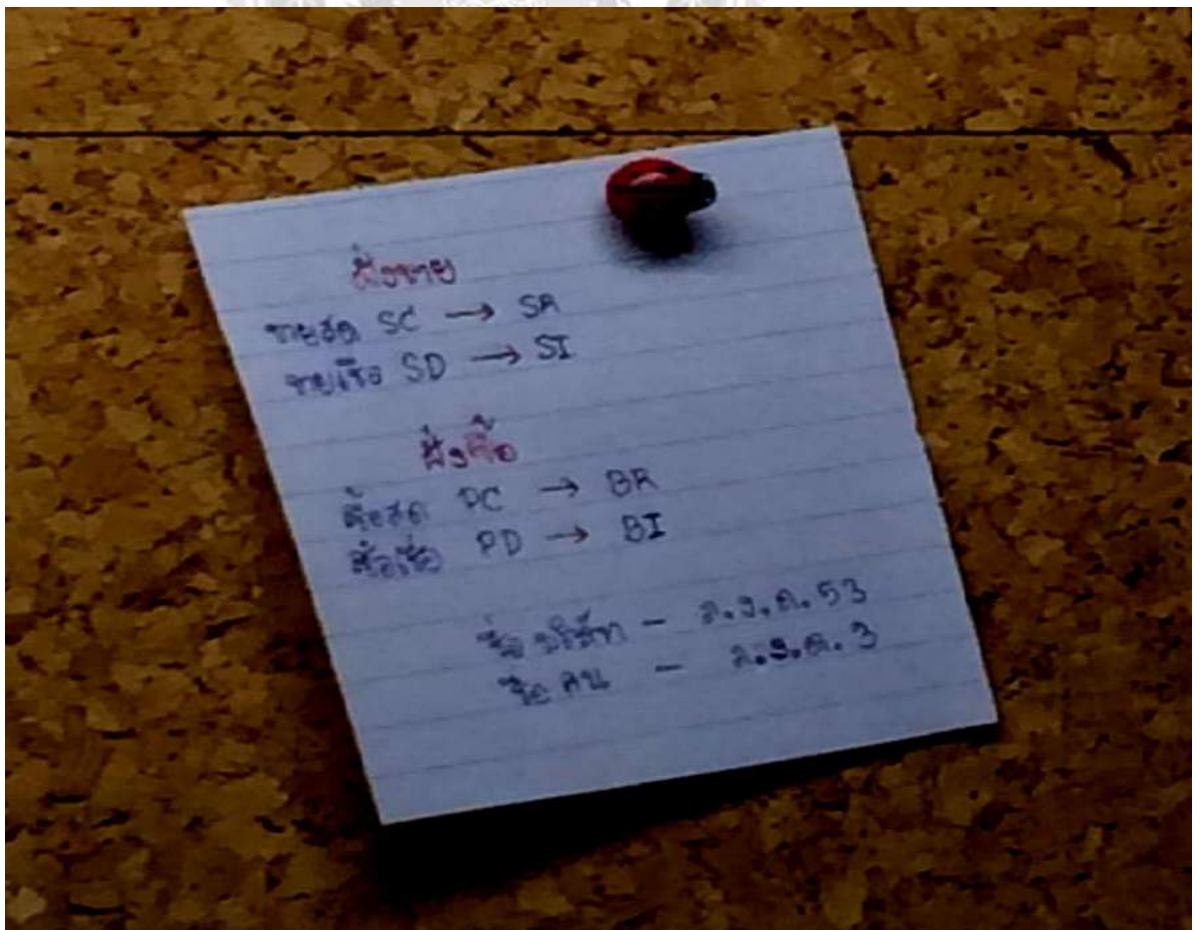 ฝั่งขาย
ขายสด SC → SR
ขายเชื่อ SD → SI
ฝั่งซื้อ
ซื้อสด PC → BR
ซื้อเชื่อ PD → BI
ชื่อบริษัท - ภ.ง.ด. 53
ชื่อคน - ภ.ง.ด. 3